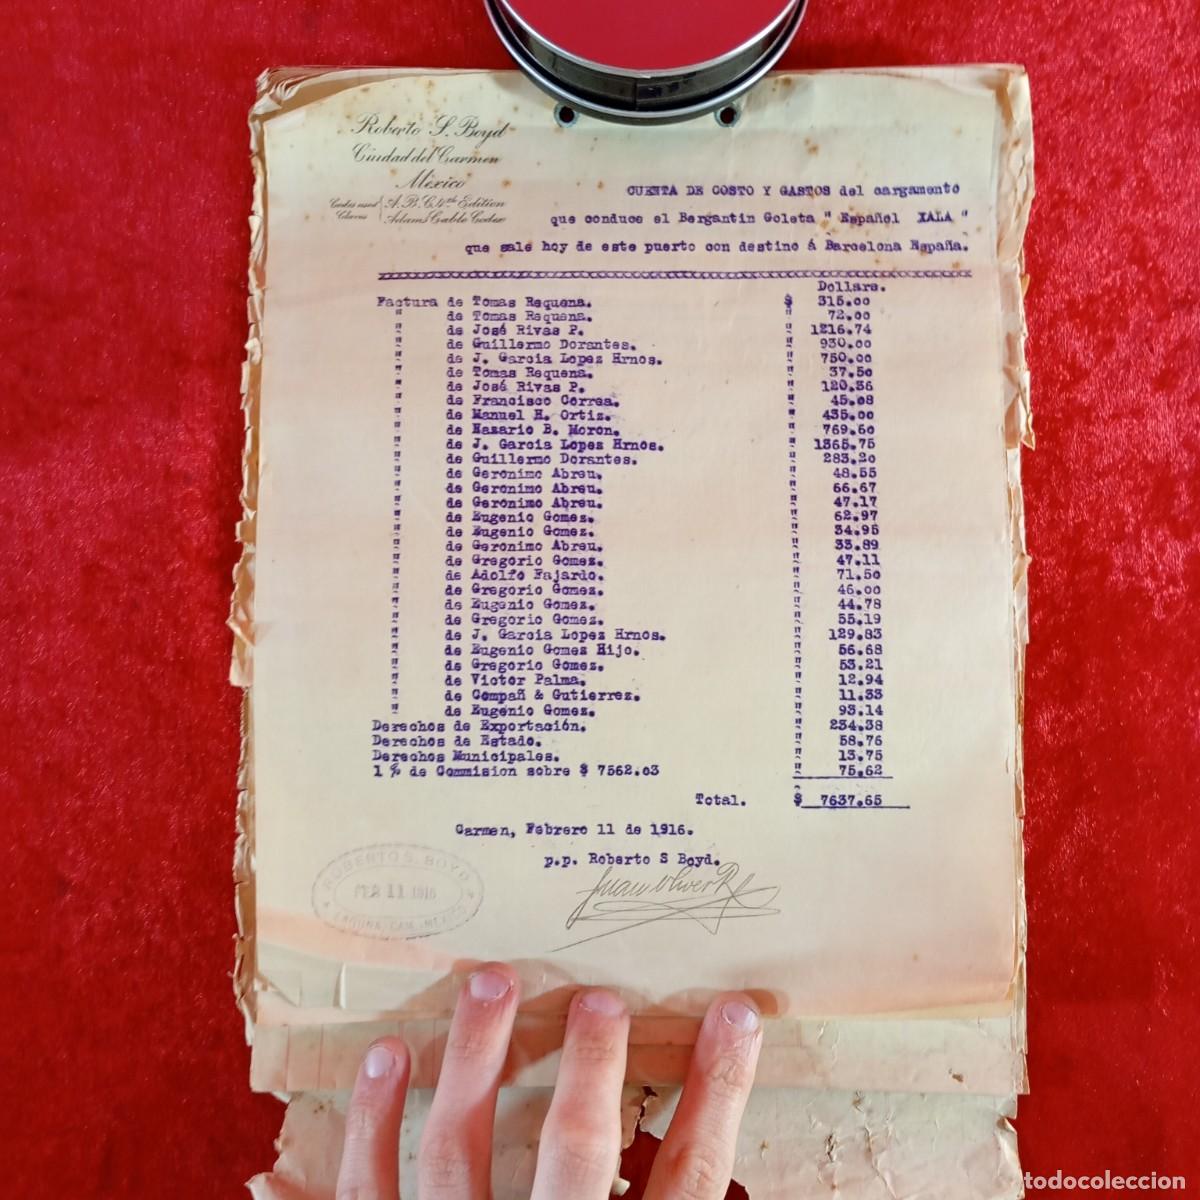 Roberto S. Boyd
Ciudad del Carmen
México
Codes used A.B.C. 4th Edition
Claves Adams Cable Codex
CUENTA DE COSTO Y GASTOS del cargamento
que conduce el Bergantin Goleta " Español XALA "
que sale hoy de este puerto con destino á Barcelona España.
Dollars.
Factura de Tomas Requena. $ 315.00
" de Tomas Requena. " 72.00
" de José Rivas P. " 1216.74
" de Guillermo Dorantes. " 930.00
" de J. Garcia Lopez Hrnos. " 750.00
" de Tomas Requena. " 37.50
" de José Rivas P. " 120.36
" de Francisco Correa. " 45.08
" de Manuel H. Ortiz. " 435.00
" de Nazario B. Moron. " 769.60
" de J. Garcia Lopez Hrnos. " 1365.75
" de Guillermo Dorantes. " 283.20
" de Geronimo Abreu. " 48.55
" de Geronimo Abreu. " 66.67
" de Geronimo Abreu. " 47.17
" de Eugenio Gomez. " 62.97
" de Eugenio Gomez. " 34.95
" de Geronimo Abreu. " 33.89
" de Gregorio Gomez. " 47.11
" de Adolfo Fajardo. " 71.50
" de Gregorio Gomez. " 46.00
" de Eugenio Gomez. " 44.78
" de Gregorio Gomez. " 55.19
" de J. Garcia Lopez Hrnos. " 129.83
" de Eugenio Gomez Hijo. " 56.68
" de Gregorio Gomez. " 53.21
" de Victor Palma. " 12.94
" de Compañ & Gutierrez. " 11.33
" de Eugenio Gomez. " 93.14
Derechos de Exportación. " 234.38
Derechos de Estado. " 58.76
Derechos Municipales. " 13.75
1 % de Commision sobre $ 7562.03 " 75.62
Total. $ 7637.65
Carmen, Febrero 11 de 1916.
p.p. Roberto S Boyd.
Juan Oliver R
ROBERTO S. BOYD
FEB 11 1916
LAGUNA, CAM. MEXICO
todocoleccion